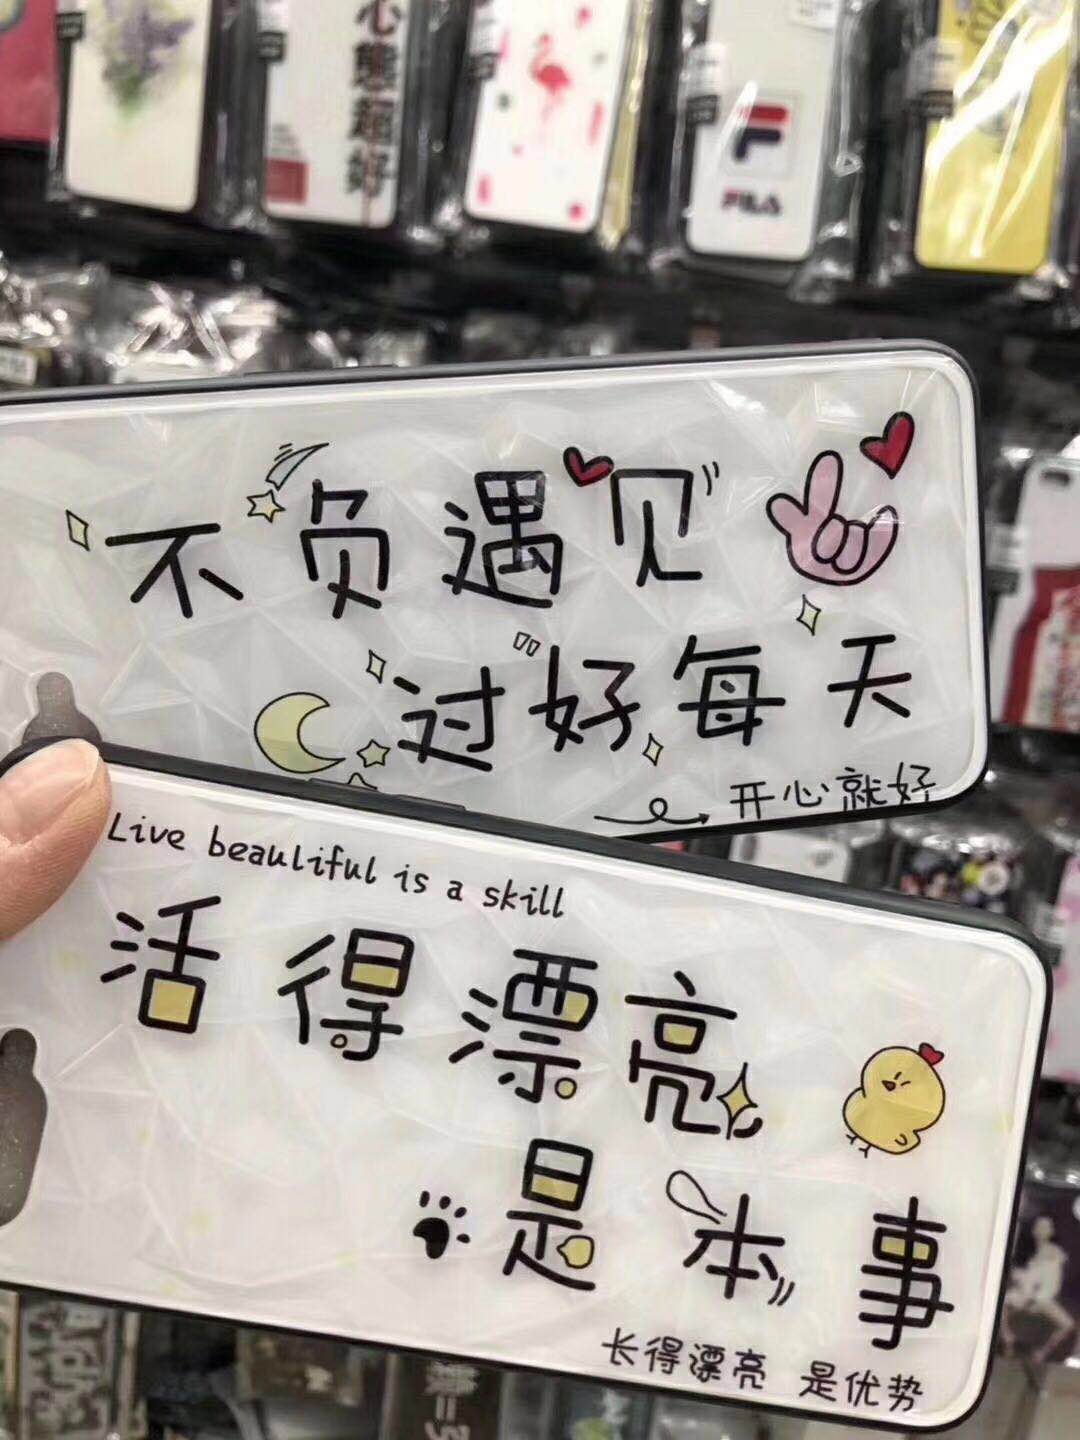 心態超好
FILA
不负遇见
过好每天
开心就好
Live beauliful is a skill
活得漂亮
是本事
长得漂亮 是优势